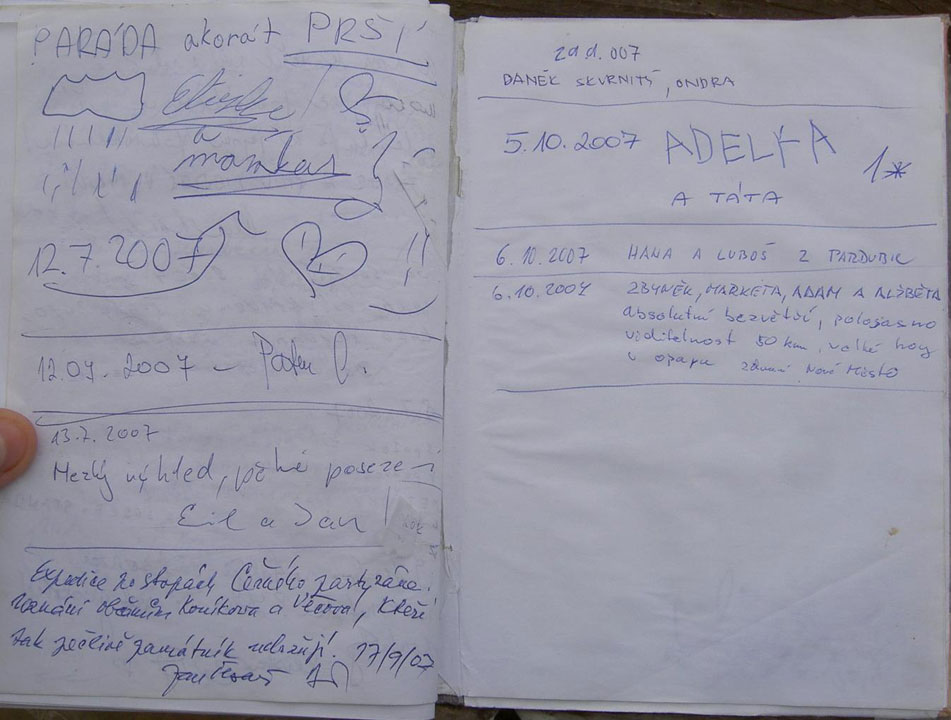 PARÁDA akorát PRŠÍ
Eliška
a
mamkas
12.7.2007 !!
12.07.2007 –
13.7.2007
Hezký výhled, pěkné poseze-í
Eil a Jan
Expedice po stopách Černého partyzána.
Uznání občanům Koníkova a Věcova, kteří
tak pečlivě památník udržují. 17/9/07
29.9.007
DANĚK SKVRNITÝ, ONDRA
5.10.2007 ADELKA 1*
A TÁTA
6.10.2007 HANA A LUBOŠ Z PARDUBIC
6.10.2007 ZBYNĚK, MARKETA, ADAM A ALŽBĚTA
absolutní bezvětří, polojasno
viditelnost 50 km, velké hory
v oparu zdraví Nové Město